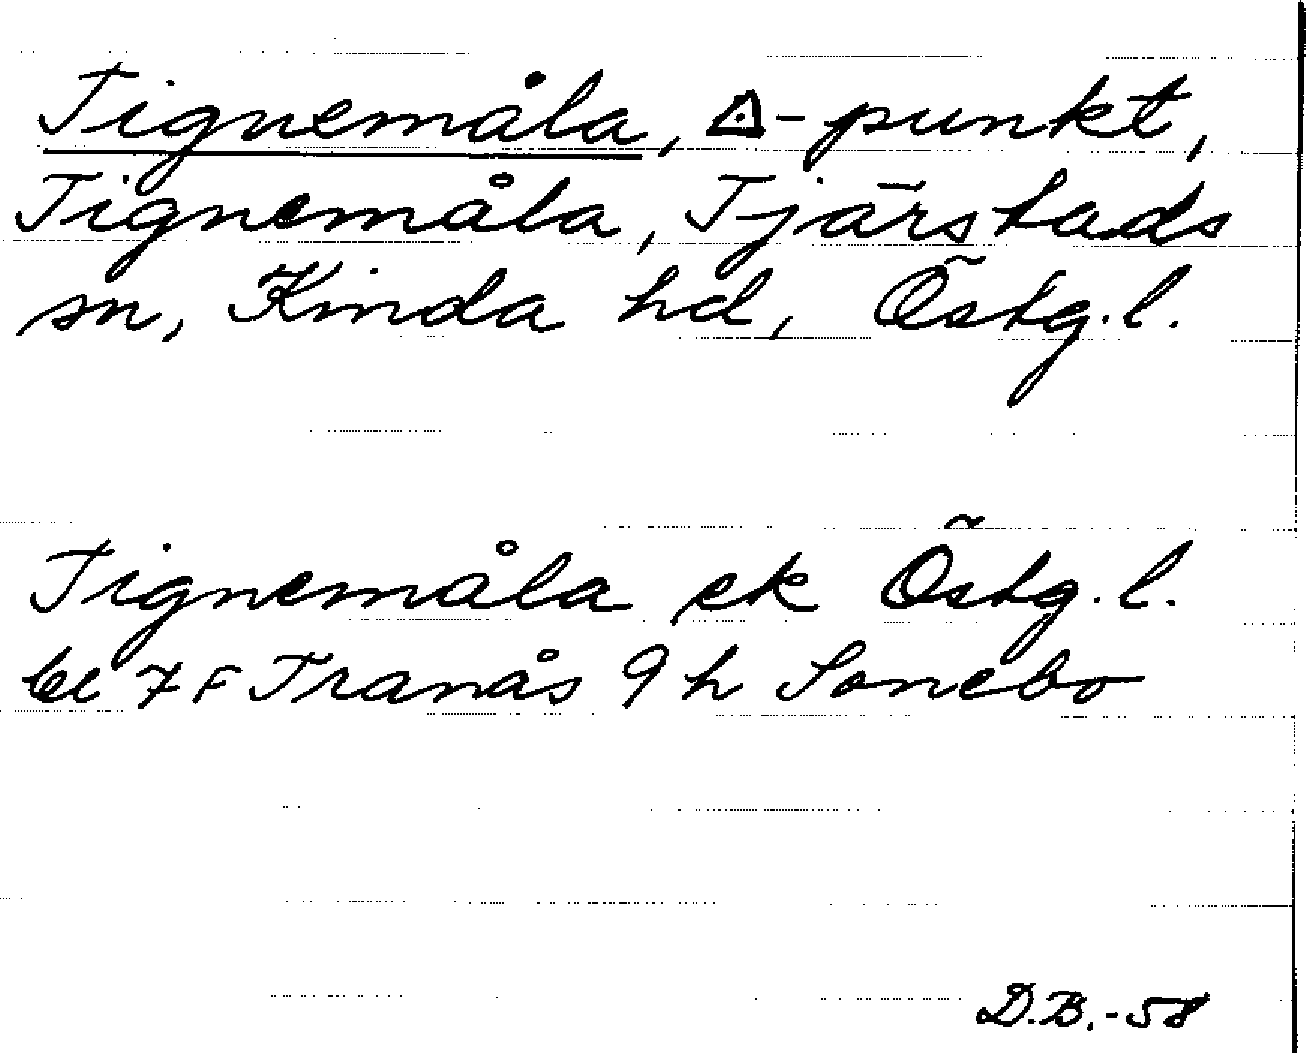 Tignemåla, △-punkt,
Tignemåla, Tjärstads
sn, Kinda hd, Östg.l.
Tignemåla ek Östg.l.
bl 7 F Tranås 9 h Sonebo
D.B.-58